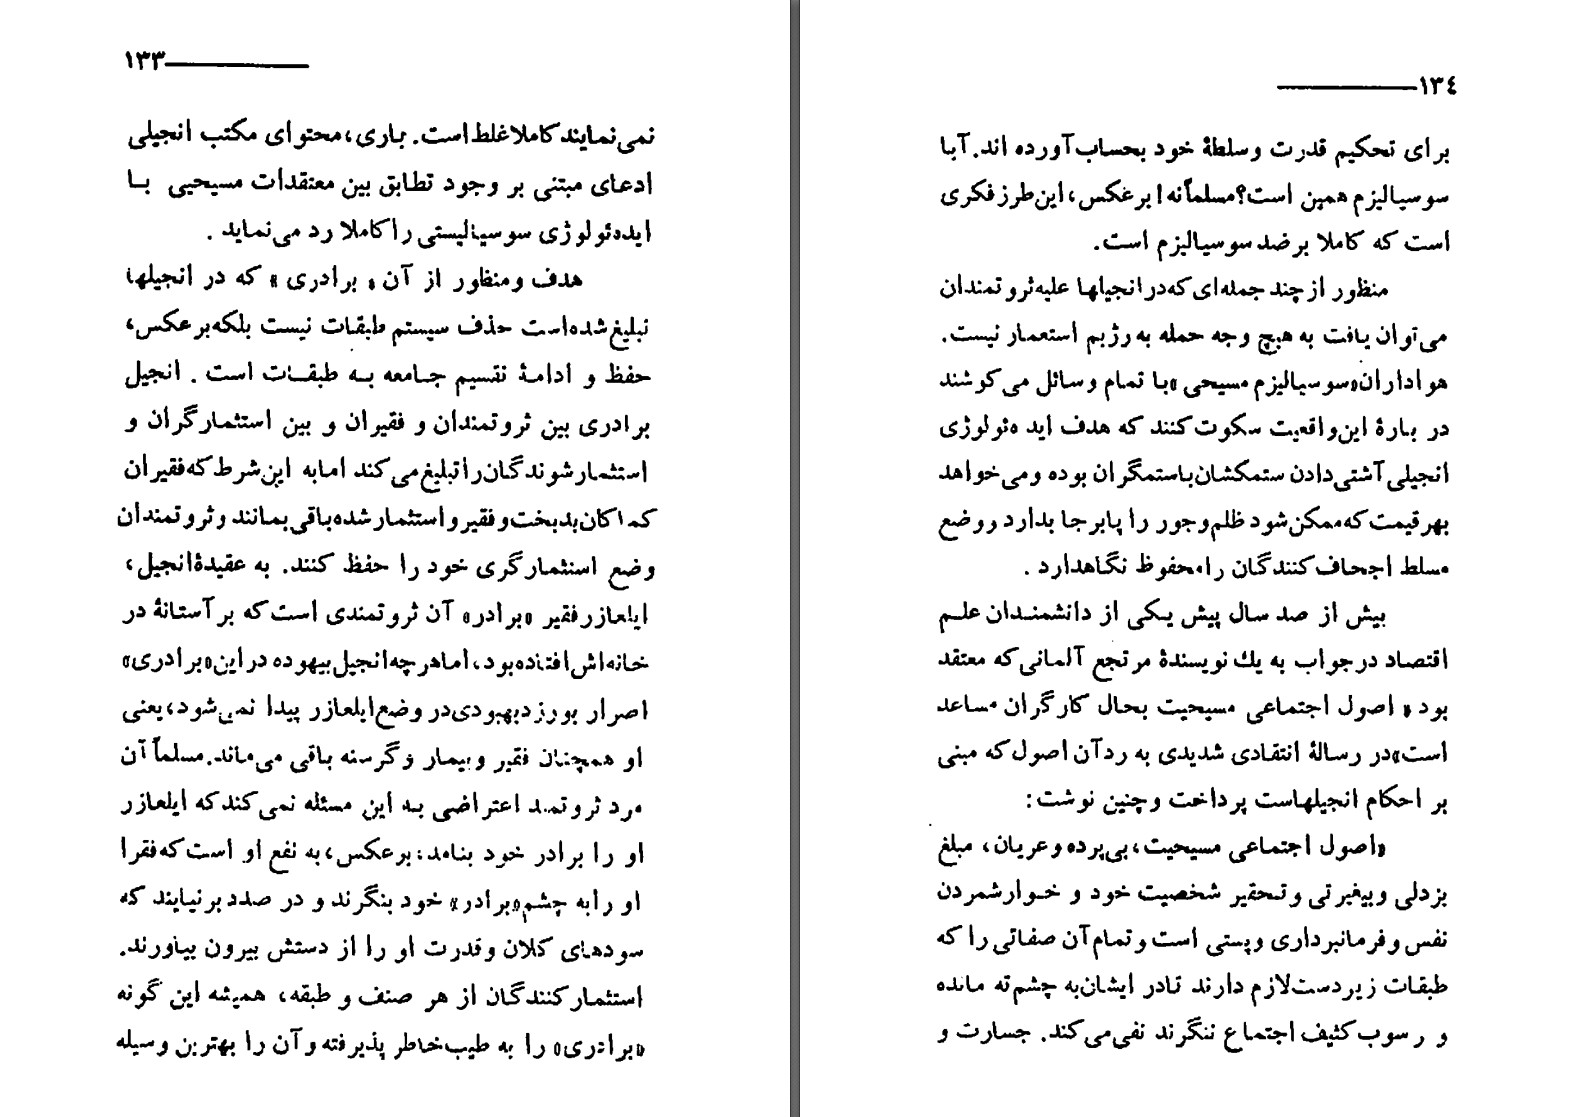 ۱۳۳
نمی‌نمایند کاملا غلط است. باری، محتوای مکتب انجیلی
ادعای مبتنی بر وجود تطابق بین معتقدات مسیحیی با
ایده‌ئولوژی سوسیالیستی را کاملا رد می‌نماید .
هدف و منظور از آن « برادری » که در انجیلها
تبلیغ شده‌است حذف سیستم طبقات نیست بلکه برعکس،
حفظ و ادامهٔ تقسیم جامعه به طبقات است . انجیل
برادری بین ثروتمندان و فقیران و بین استثمارگران و
استثمارشوندگان را تبلیغ می‌کند اما به این شرط که فقیران
کماکان بدبخت و فقیر و استثمار شده باقی بمانند و ثروتمندان
وضع استثمارگری خود را حفظ کنند. به عقیدهٔ انجیل،
ایلعازر فقیر «برادر» آن ثروتمندی است که بر آستانهٔ در
خانه‌اش افتاده بود، اما هر چه انجیل بیهوده در این «برادری»
اصرار بورزد بهبودی در وضع ایلعازر پیدا نمی‌شود، یعنی
او همچنان فقیر و بیمار و گرسنه باقی می‌ماند. مسلماً آن
مرد ثروتمند اعتراضی به این مسئله نمی‌کند که ایلعازر
او را برادر خود بنامد؛ برعکس، به نفع او است که فقرا
او را به چشم «برادر» خود بنگرند و در صدد برنیایند که
سودهای کلان و قدرت او را از دستش بیرون بیاورند.
استثمارکنندگان از هر صنف و طبقه، همیشه این گونه
«برادری» را به طیب خاطر پذیرفته و آن را بهترین وسیله
۱۳۴
برای تحکیم قدرت و سلطهٔ خود بحساب آورده اند. آیا
سوسیالیزم همین است؟ مسلماً نه! برعکس، این طرز فکری
است که کاملا برضد سوسیالیزم است.
منظور از چند جمله‌ای که در انجیلها علیه ثروتمندان
می‌توان یافت به هیچ وجه حمله به رژیم استعمار نیست.
هواداران «سوسیالیزم مسیحی» با تمام وسائل می‌کوشند
در بارهٔ این واقعیت سکوت کنند که هدف ایده‌ئولوژی
انجیلی آشتی دادن ستمکشان با ستمگران بوده و می‌خواهد
بهر قیمت که ممکن شود ظلم و جور را پابرجا بدارد و وضع
مسلط اجحاف‌کنندگان را محفوظ نگاهدارد .
بیش از صد سال پیش یکی از دانشمندان علم
اقتصاد در جواب به یك نویسندهٔ مرتجع آلمانی که معتقد
بود « اصول اجتماعی مسیحیت بحال کارگران مساعد
است» در رسالهٔ انتقادی شدیدی به رد آن اصول که مبنی
بر احکام انجیلهاست پرداخت و چنین نوشت:
«اصول اجتماعی مسیحیت، بی‌پرده و عریان، مبلغ
بزدلی و بیغیرتی و تحقیر شخصیت خود و خوارشمردن
نفس و فرمانبرداری و پستی است و تمام آن صفاتی را که
طبقات زیردست لازم دارند تا در ایشان به چشم ته مانده
و رسوب کثیف اجتماع ننگرند نفی می‌کند. جسارت و